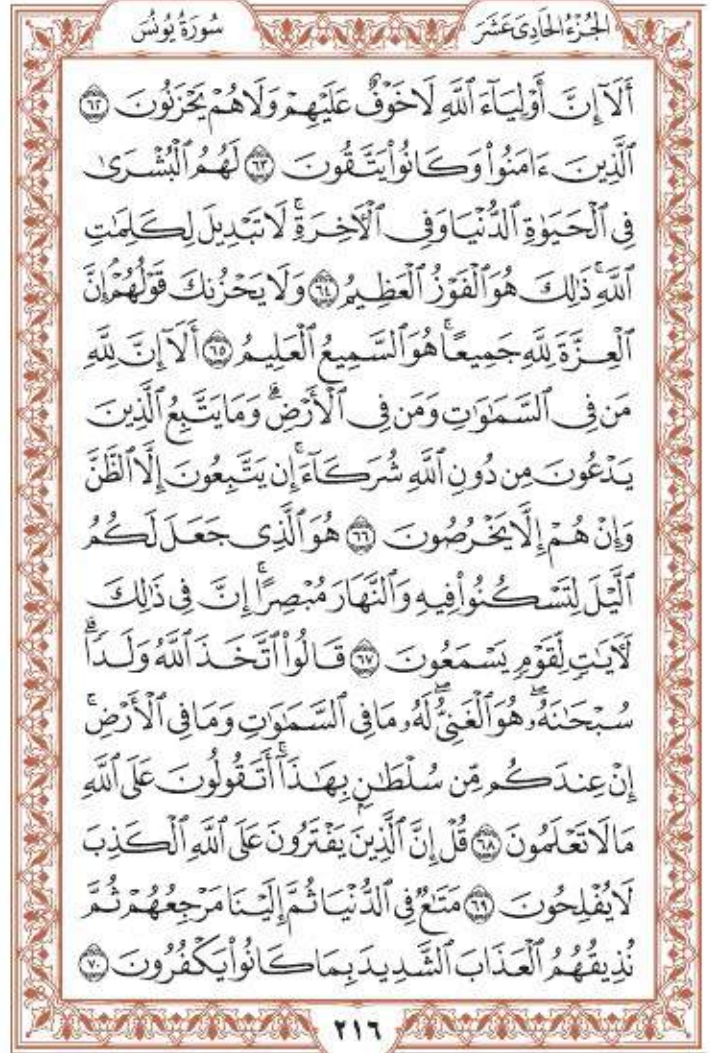 الجزء الحادي عشر
سورة يونس
أَلَآ إِنَّ أَوْلِيَآءَ ٱللَّهِ لَا خَوْفٌ عَلَيْهِمْ وَلَا هُمْ يَحْزَنُونَ ٦٢
ٱلَّذِينَ ءَامَنُوا۟ وَكَانُوا۟ يَتَّقُونَ ٦٣ لَهُمُ ٱلْبُشْرَىٰ
فِى ٱلْحَيَوٰةِ ٱلدُّنْيَا وَفِى ٱلْأَخِرَةِ ۚ لَا تَبْدِيلَ لِكَلِمَٰتِ
ٱللَّهِ ۚ ذَٰلِكَ هُوَ ٱلْفَوْزُ ٱلْعَظِيمُ ٦٤ وَلَا يَحْزُنكَ قَوْلُهُمْ ۘ إِنَّ
ٱلْعِزَّةَ لِلَّهِ جَمِيعًا ۚ هُوَ ٱلسَّمِيعُ ٱلْعَلِيمُ ٦٥ أَلَآ إِنَّ لِلَّهِ
مَن فِى ٱلسَّمَٰوَٰتِ وَمَن فِى ٱلْأَرْضِ ۗ وَمَا يَتَّبِعُ ٱلَّذِينَ
يَدْعُونَ مِن دُونِ ٱللَّهِ شُرَكَآءَ ۚ إِن يَتَّبِعُونَ إِلَّا ٱلظَّنَّ
وَإِنْ هُمْ إِلَّا يَخْرُصُونَ ٦٦ هُوَ ٱلَّذِى جَعَلَ لَكُمُ
ٱلَّيْلَ لِتَسْكُنُوا۟ فِيهِ وَٱلنَّهَارَ مُبْصِرًا ۚ إِنَّ فِى ذَٰلِكَ
لَأَيَٰتٍ لِّقَوْمٍ يَسْمَعُونَ ٦٧ قَالُوا۟ ٱتَّخَذَ ٱللَّهُ وَلَدًا ۗ
سُبْحَٰنَهُۥ ۖ هُوَ ٱلْغَنِىُّ ۖ لَهُۥ مَا فِى ٱلسَّمَٰوَٰتِ وَمَا فِى ٱلْأَرْضِ ۚ
إِنْ عِندَكُم مِّن سُلْطَٰنٍۭ بِهَٰذَآ ۚ أَتَقُولُونَ عَلَى ٱللَّهِ
مَا لَا تَعْلَمُونَ ٦٨ قُلْ إِنَّ ٱلَّذِينَ يَفْتَرُونَ عَلَى ٱللَّهِ ٱلْكَذِبَ
لَا يُفْلِحُونَ ٦٩ مَتَٰعٌ فِى ٱلدُّنْيَا ثُمَّ إِلَيْنَا مَرْجِعُهُمْ ثُمَّ
نُذِيقُهُمُ ٱلْعَذَابَ ٱلشَّدِيدَ بِمَا كَانُوا۟ يَكْفُرُونَ ٧٠
٢١٦